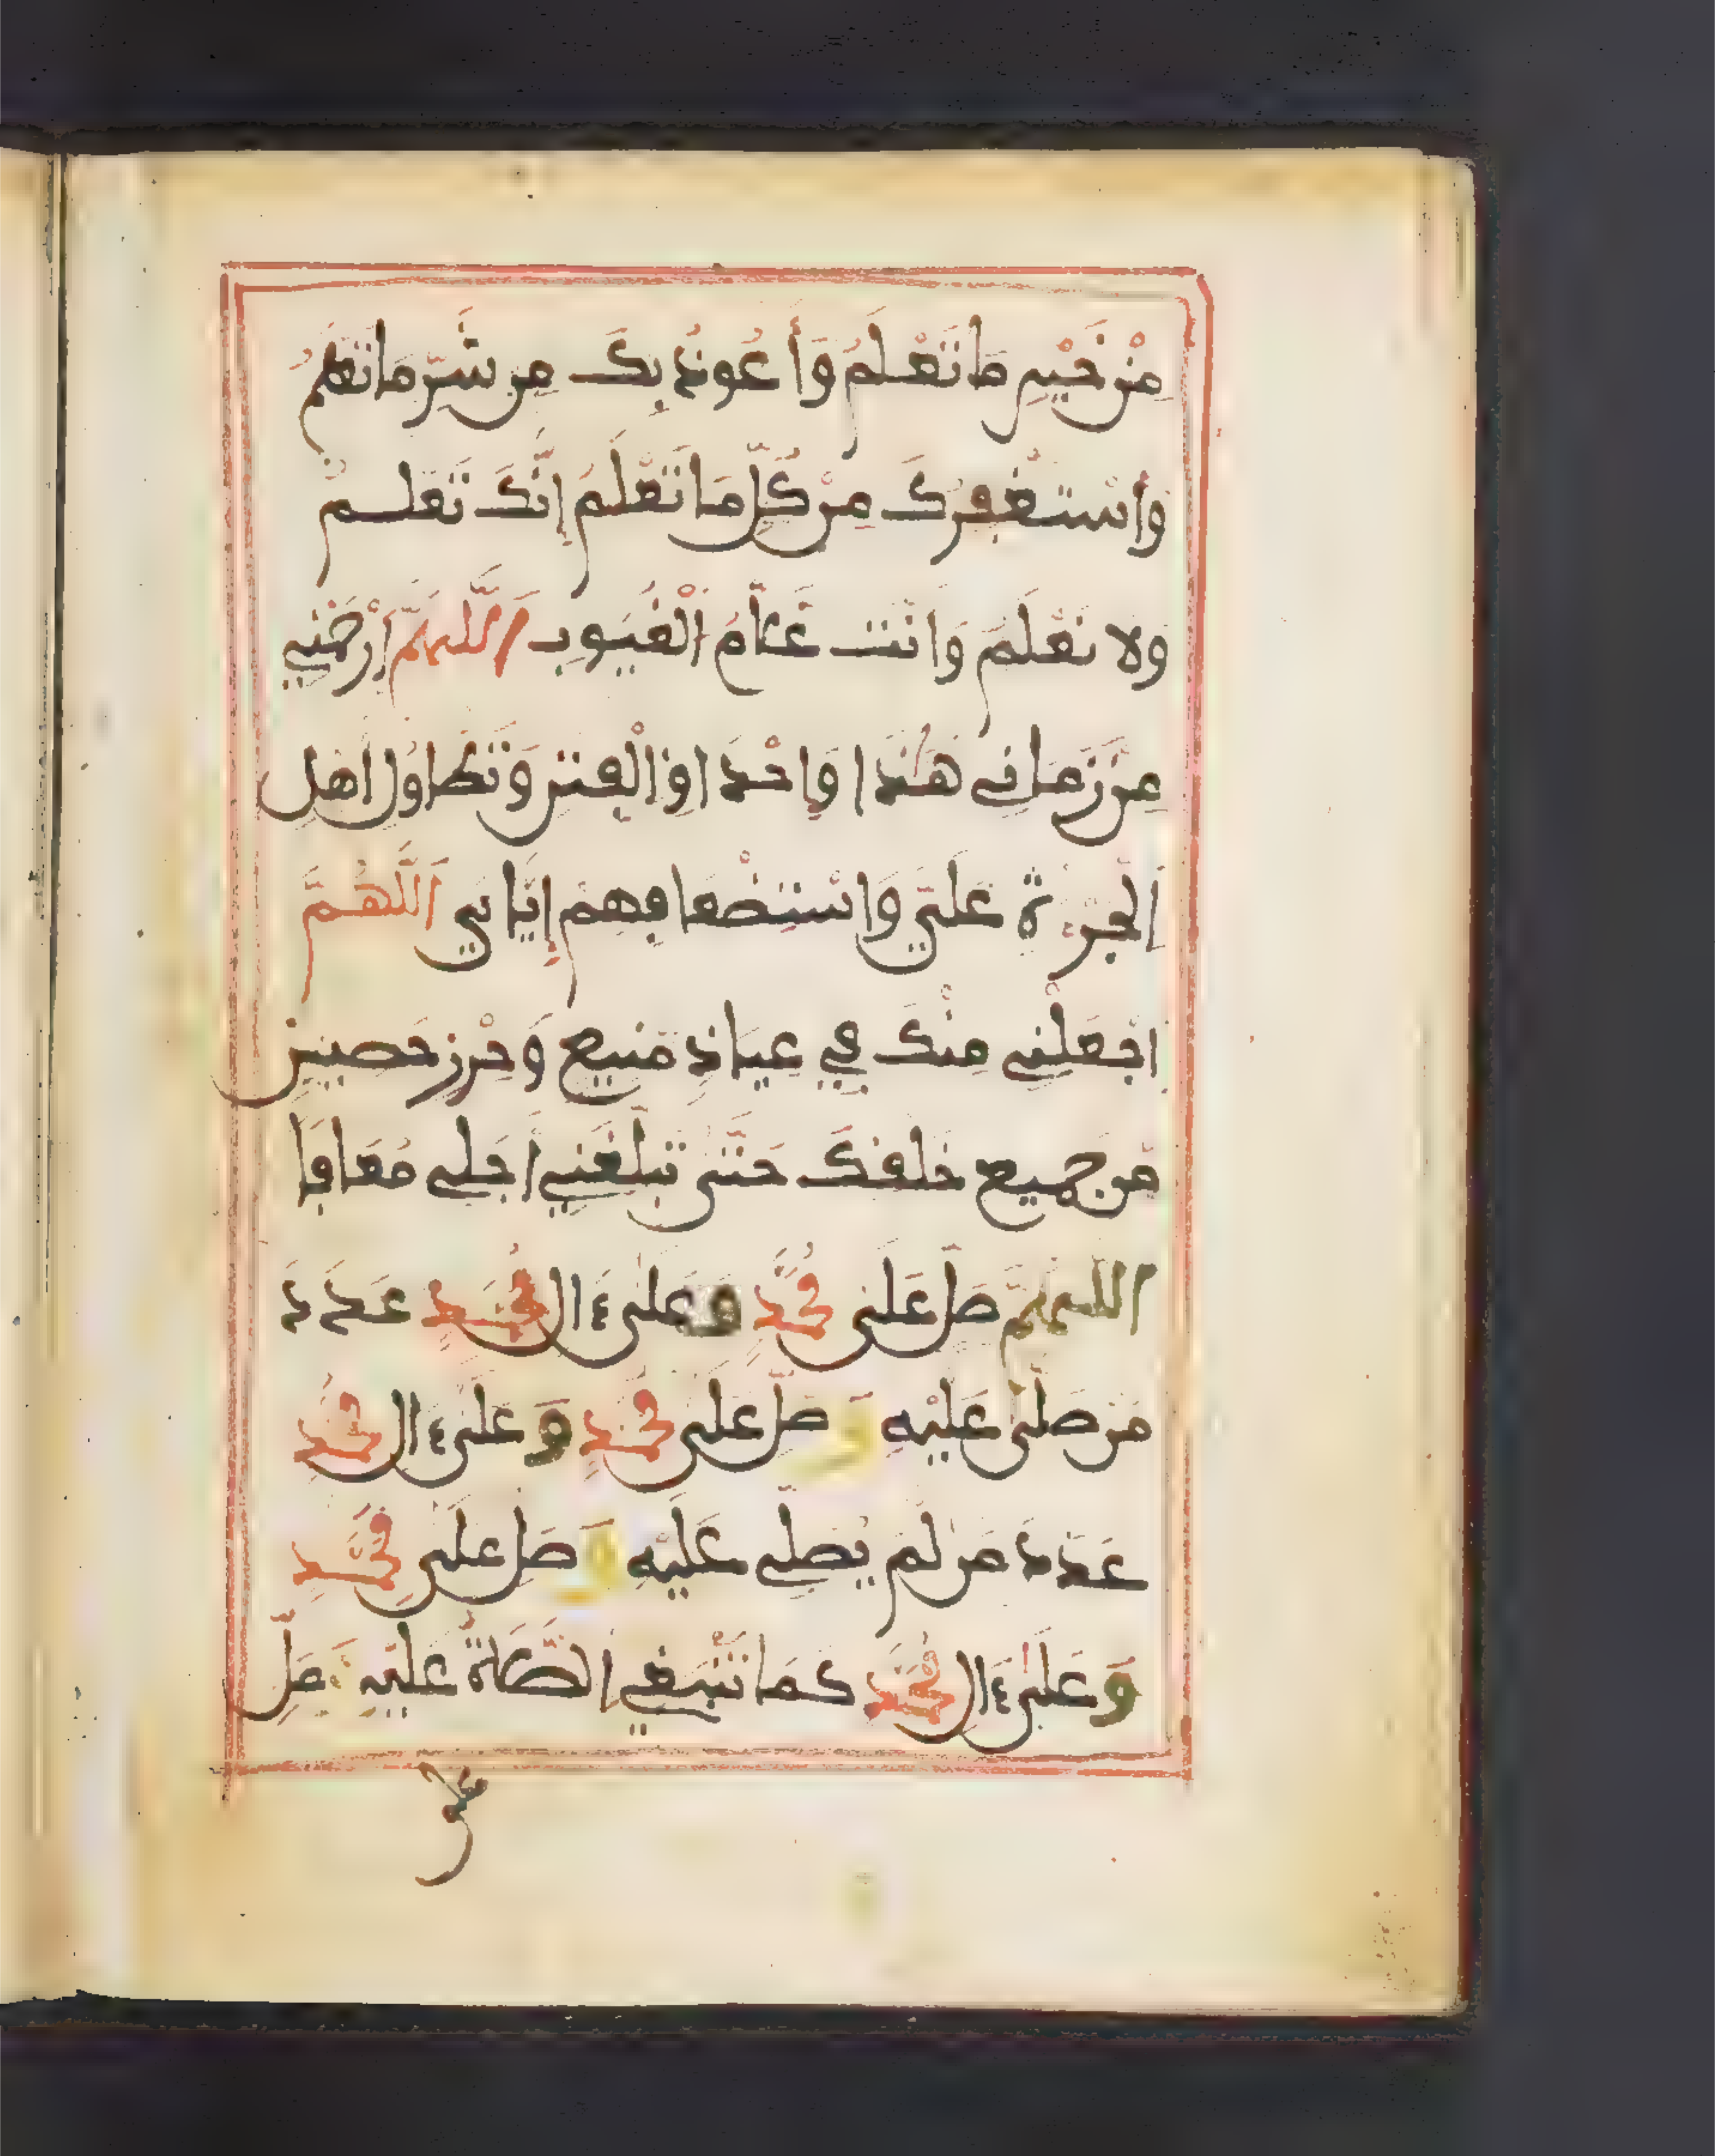 مِنْ خَيْرِ مَا تَعْلَمُ وَأَعُوذُ بِكَ مِن شَرِّ مَا تَعْلَمُ
وَأَسْتَغْفِرُكَ مِنْ كُلِّ مَا تَعْلَمُ إِنَّكَ تَعْلَمْ
وَلا نَعْلَمُ وَأَنْتَ عَلَّامُ الْغُيُوبِ اللَّهُمَّ ارْحَمْنِي
مِنْ زَمَانِي هَٰذَا وَإِحْدَاوِ الْفِتَنِ وَتَطَاوُلِ أَهْلِ
الْجُرْءَةِ عَلَيَّ وَاسْتِضْعَافِهِمْ إِيَّايَ اللَّهُمَّ
اجْعَلْنِي مِنْكَ فِي عِيَاذٍ مَنِيعٍ وَحِرْزٍ حَصِينٍ
مِن جَمِيعِ خَلْقِكَ حَتَّى تُبَلِّغَنِي أَجَلِي مُعَافًا
اللَّهُمَّ صَلِّ عَلَى مُحَمَّدٍ وَعَلَى ءَالِ مُحَمَّدٍ عَدَدَ
مَن صَلَّى عَلَيْهِ وَصَلِّ عَلَى مُحَمَّدٍ وَعَلَى ءَالِ مُحَمَّدٍ
عَدَدَ مَن لَمْ يُصَلِّي عَلَيْهِ وَصَلِّ عَلَى مُحَمَّدٍ
وَعَلَى ءَالِ مُحَمَّدٍ كَمَا تَنْبَغِي الصَّلَاةُ عَلَيْهِ وَصَلِّ
على